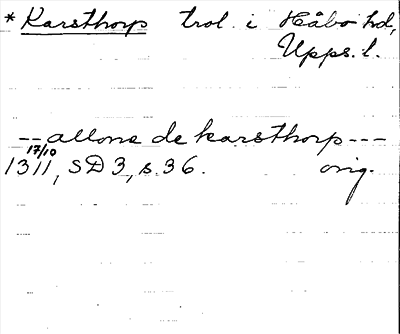 * Karsthorp trol. i Håbo hd,
Upps. l.
-- allone de karsthorp ---
17/10
1311, SD 3, s. 36. orig.